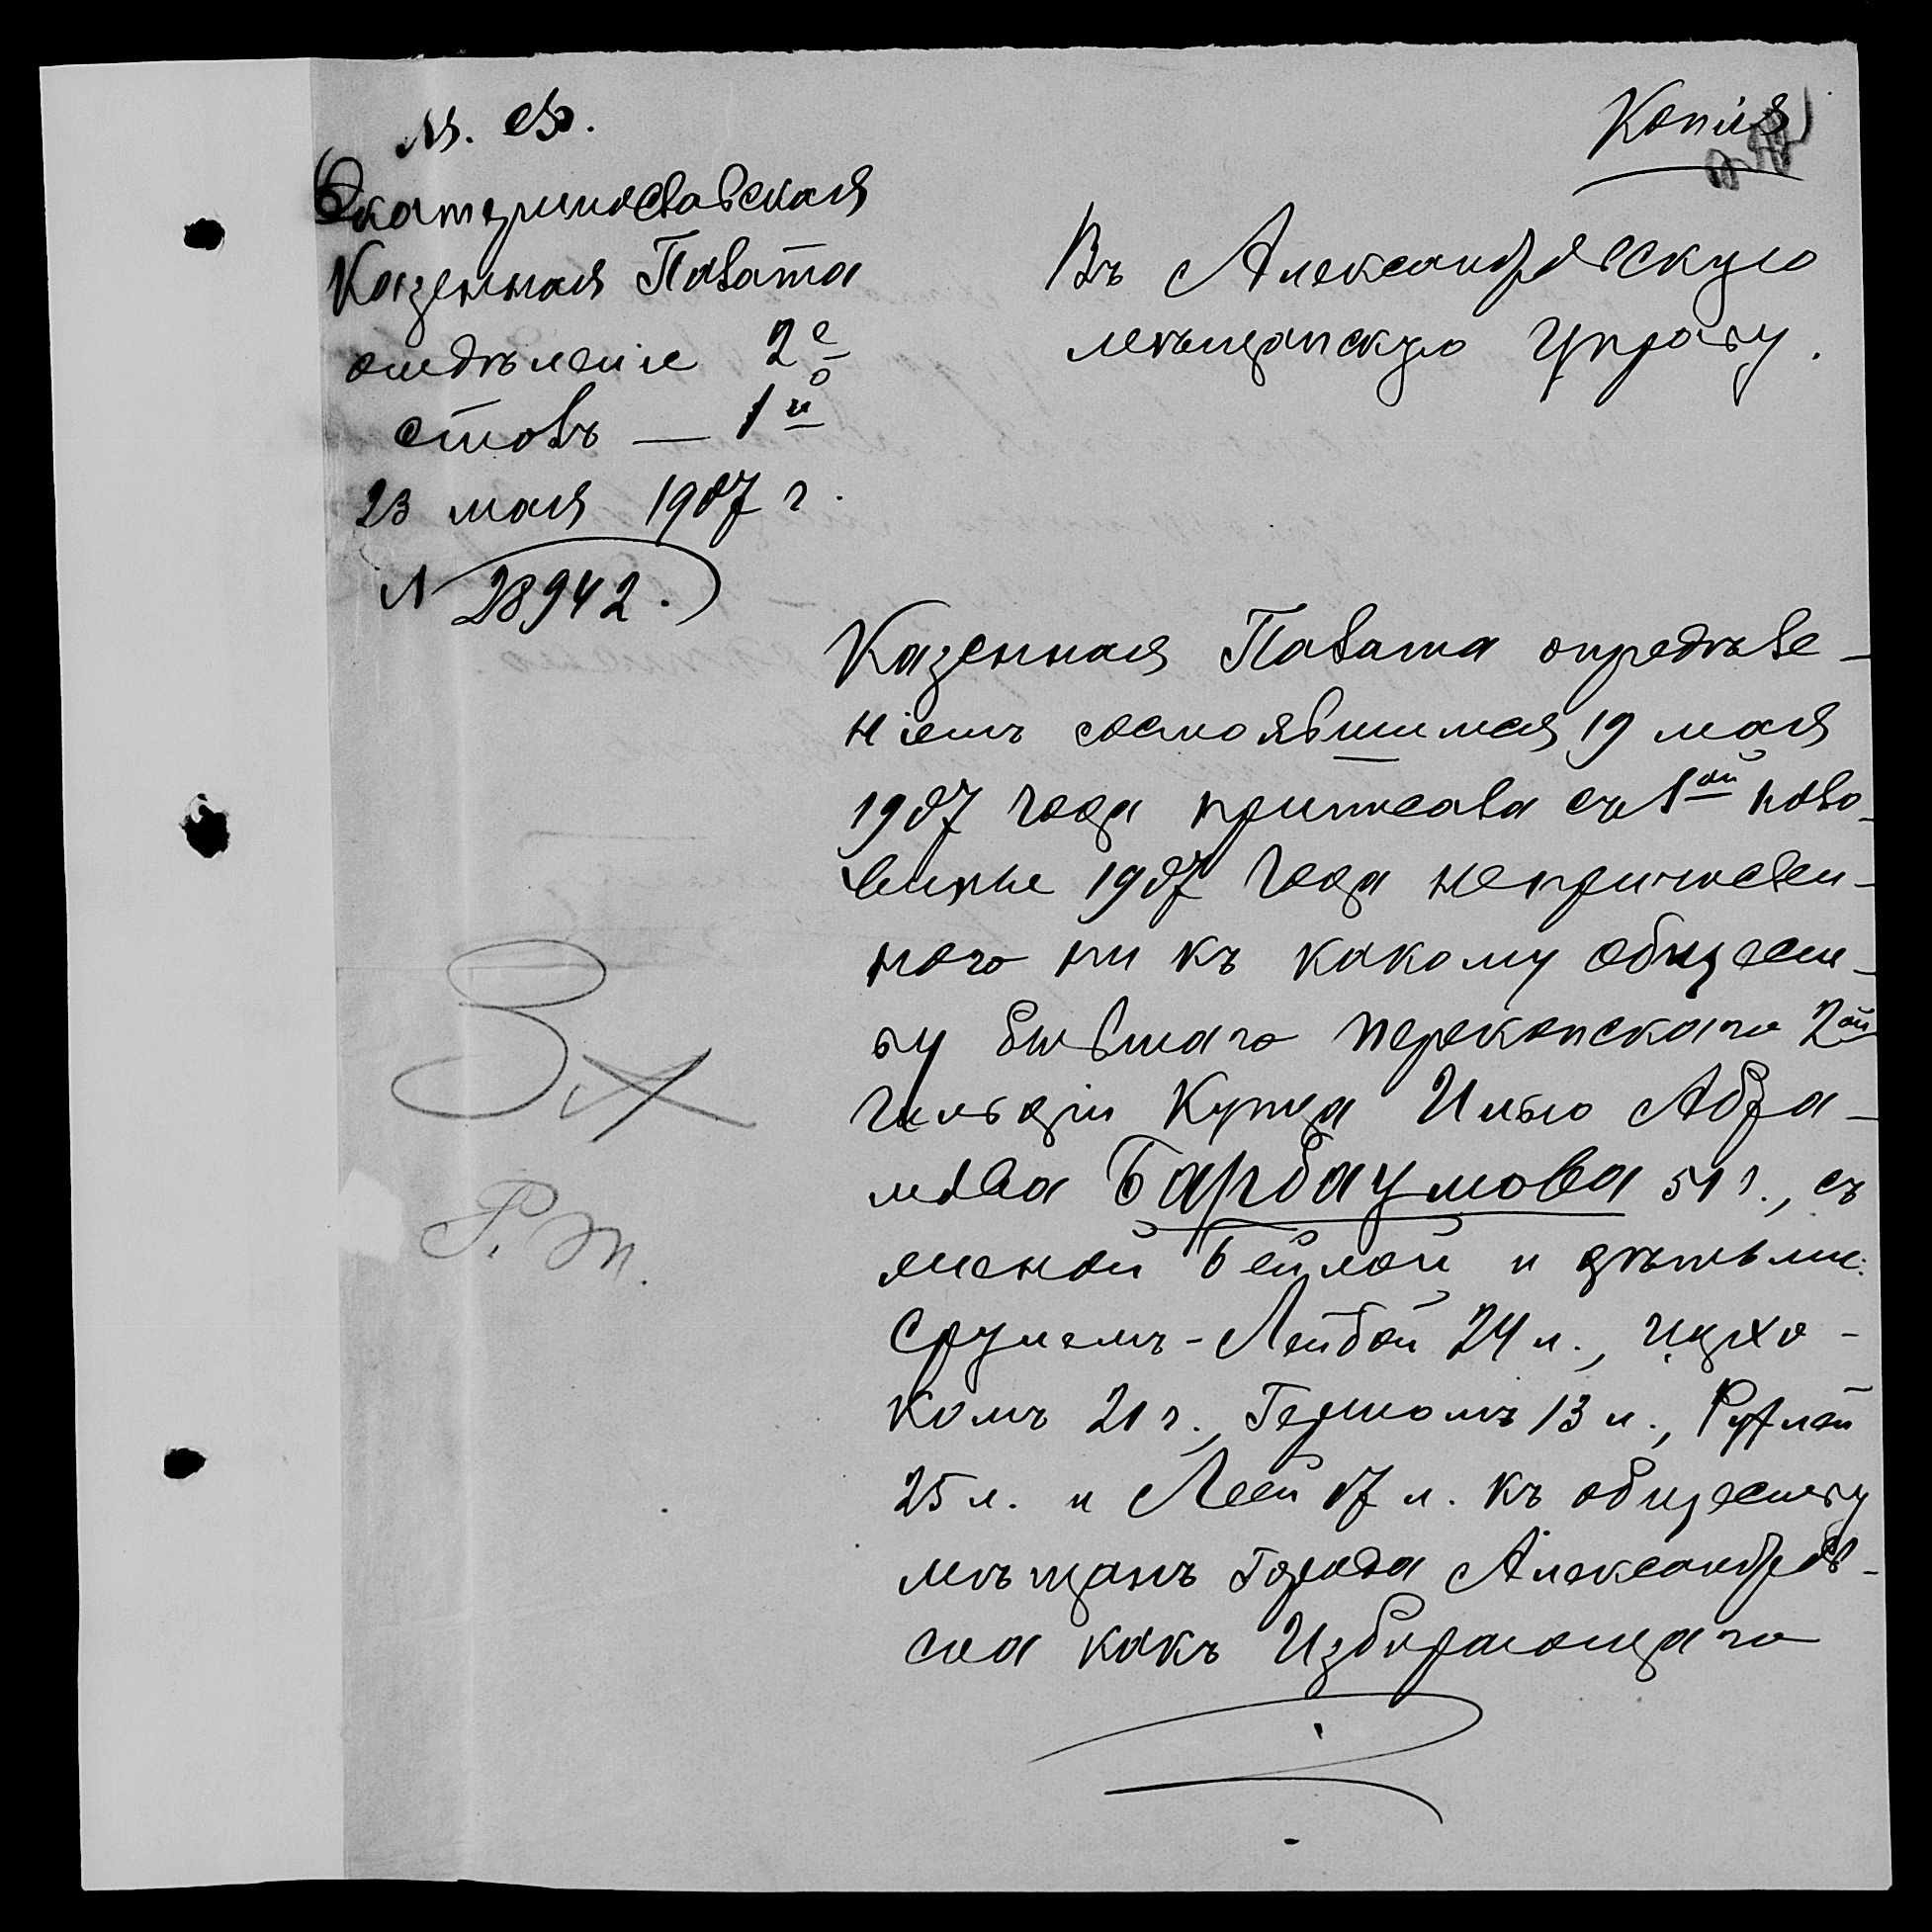 М. Ф.
Екатеринославская
Казенная Палата
отдѣленiе 2е
столъ — 1й
23 мая 1907 г.
N 28942.
Копiя
Въ Александровскую
мѣщанскую Управу.
Казенная Палата опредѣле-
нiемъ состоявшимся 19 мая
1907 года причислила съ 1ой поло-
вины 1907 года непричислен-
наго ни къ какому общест-
ву бывшаго Перекопскаго 2ой
гильдiи Купца Илью Абра-
мова Барбаумова 51 г., съ
женой Бейлой и дѣтьми:
Срулемъ-Лейбой 24 л., Ицхо-
комъ 21 г., Гершомъ 13 л., Рухлей
25 л. и Леей 17 л. къ обществу
мѣщанъ города Александров-
ска какъ Избирающаго
Р. т.